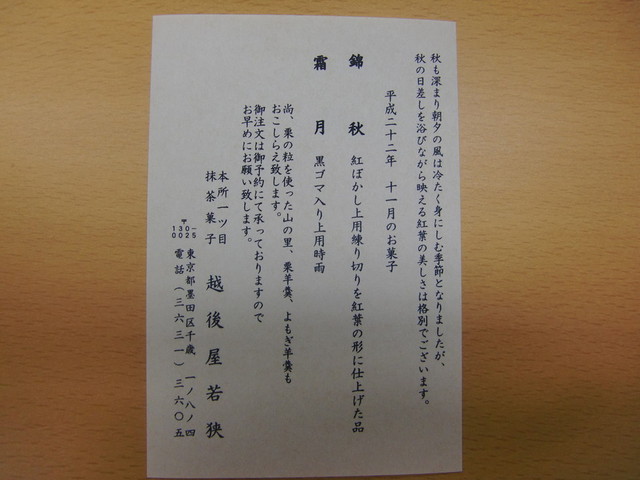 秋も深まり朝夕の風は冷たく身にしむ季節となりましたが、
秋の日差しを浴びながら映える紅葉の美しさは格別でございます。
平成二十二年 十一月のお菓子
錦秋 紅ぼかし上用練り切りを紅葉の形に仕上げた品
霜月 黒ゴマ入り上用時雨
尚、栗の粒を使った山の里、栗羊羹、よもぎ羊羹も
おこしらえ致します。
御注文は御予約にて承っておりますので
お早めにお願い致します。
本所一ツ目
抹茶菓子 越後屋若狭
〒130-0025 東京都墨田区千歳 一ノ八ノ四
電話(三六三一)三六〇五